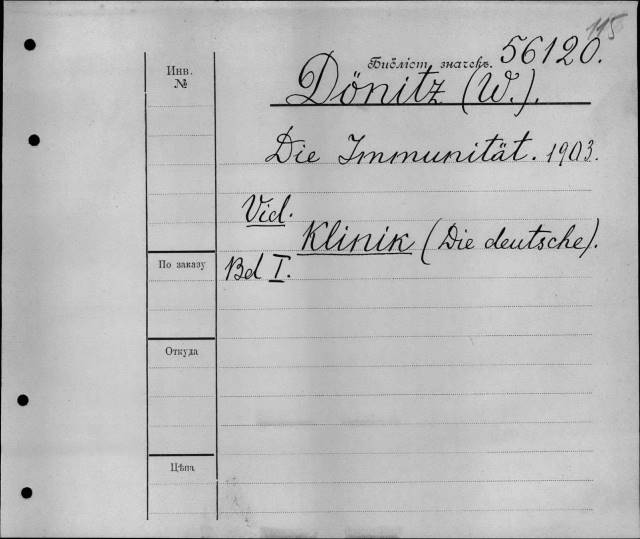 115
Библіот. значекъ. 56120.
Инв.
№
Dönitz (W.).
Die Immunität. 1903.
Vid.
Klinik (Die deutsche).
По заказу
Bd I.
Откуда
Цѣна